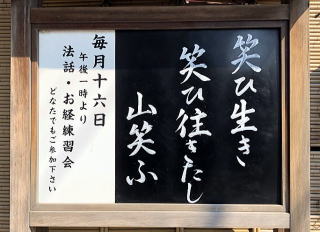 笑ひ生き
笑ひ往きたし
山笑ふ
毎月十六日
午後一時より
法話・お経練習会
どなたでもご参加下さい